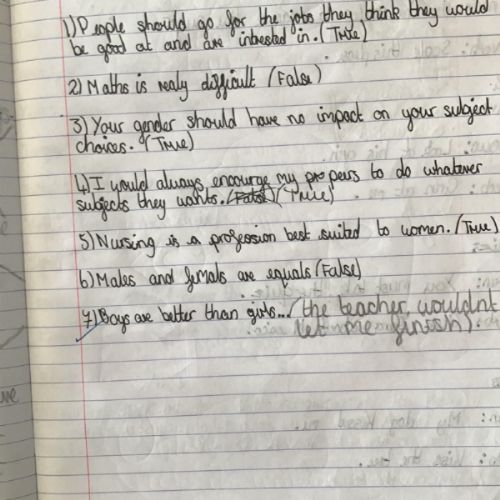 1) People should go for the jobs they think they would
be good at and are intrested in. (True)
2) Maths is realy difficult (False)
3) Your gender should have no impact on your subject
choices. (True)
4) I would always encourge my pe peers to do whatever
subjects they wants. (False) (True)
5) Nursing is a profession best suited to women. (True)
6) Males and femals are equals (False)
7) Boys are better than girls... (the teacher wouldnt
let me finish).